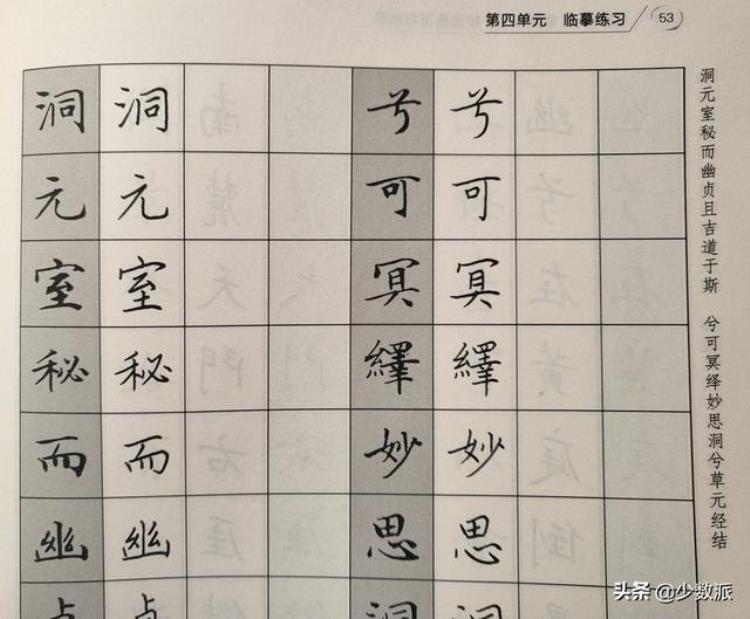 第四单元 临摹练习 53
洞元室秘而幽
洞元室秘而幽
兮可冥繹妙思洞
兮可冥繹妙思洞
洞元室秘而幽贞且吉道于斯 兮可冥绎妙思洞兮草元经结
头条 @少数派